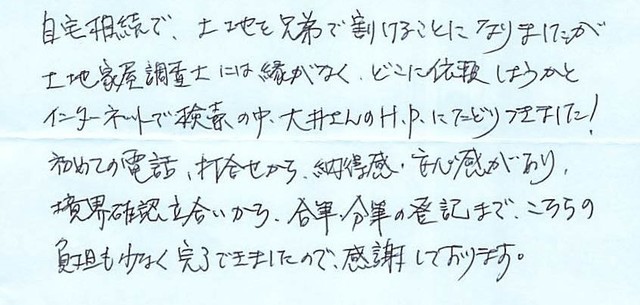 自宅相続で、土地を兄弟で割けることになりましたが
土地家屋調査士には縁がなく、どこに依頼しようかと
インターネットで検索の中、大井さんのH.P.にたどりつきました！
初めての電話、打合せから、納得感・安心感があり、
境界確認立合いから、合筆・分筆の登記まで、こちらの
負担も少なく完了できましたので、感謝しております。